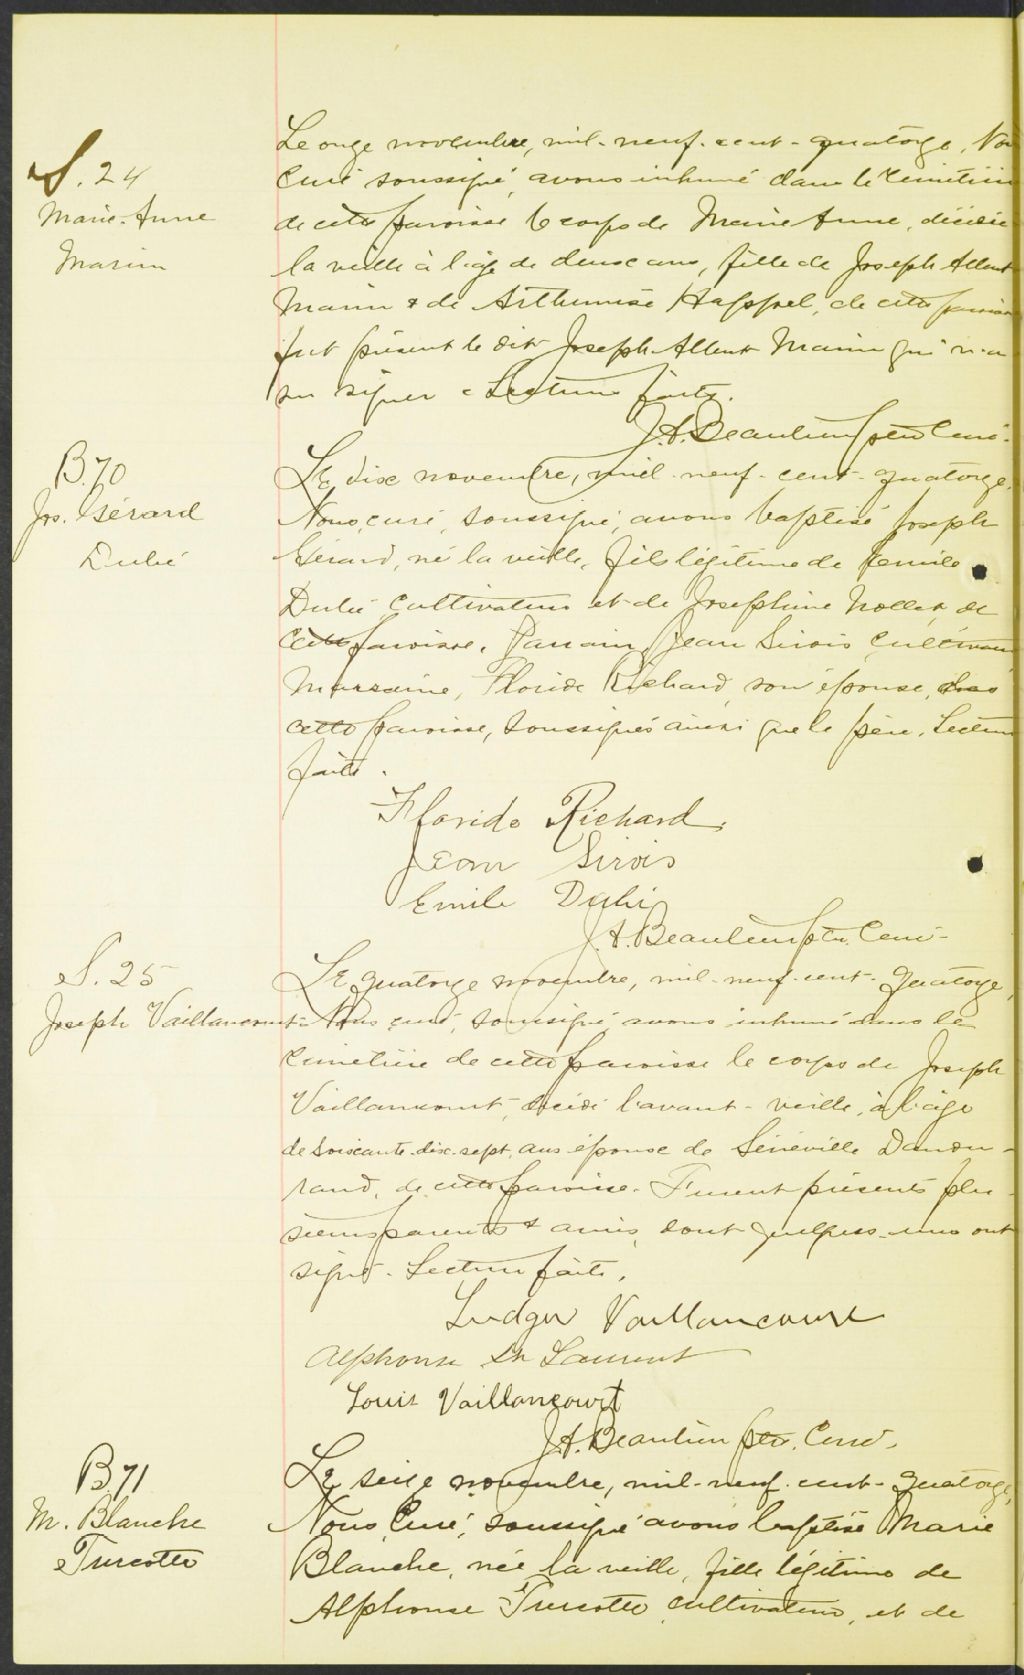 S. 24
Marie-Anne
Marin
Le onze novembre, mil-neuf-cent-quatorze, Nous
curé soussigné, avons inhumé dans le cimetière
de cette paroisse le corps de Marie Anne, décédée
la veille à l'âge de deux ans, fille de Joseph Albert
Marin & de Arthumise Happel, de cette paroisse
fut présent le dit Joseph-Albert Marin qui n'a
su signer. Lecture faite.
J.A. Beaulieu ptre Curé.
B.70
Jos. Gérard
Dubé
Le dix novembre, mil-neuf-cent-quatorze,
Nous, curé, soussigné, avons baptisé Joseph
Gérard, né la veille, fils légitime de Emile
Dubé cultivateur et de Joséphine Nollet, de
cette paroisse. Parrain, Jean Sirois cultivateur
Marraine, Floride Richard, son épouse, de
cette paroisse, soussignés ainsi que le père. Lecture
faite.
Floride Richard
Jean Sirois
Emile Dubé
J.A. Beaulieu ptre. Curé-
S. 25
Joseph Vaillancourt
Le quatorze novembre, mil-neuf-cent-quatorze,
Nous curé, soussigné avons inhumé dans le
cimetière de cette paroisse le corps de Joseph
Vaillancourt, décédé l'avant-veille, à l'âge
de soixante-dix-sept, ans épouse de Séréville Danou-
rand, de cette paroisse. Furent présents plu-
sieurs parents & amis, dont quelques-uns ont
signé. Lecture faite.
Ludger Vaillancourt
Alphonse St Laurent
Louis Vaillancourt
J.A. Beaulieu ptre. Curé.
B.71
M. Blanche
Turcotte
Le seize novembre, mil-neuf-cent-quatorze,
Nous Curé, soussigné avons baptisé Marie
Blanche, née la veille, fille légitime de
Alphonse Turcotte cultivateur, et de